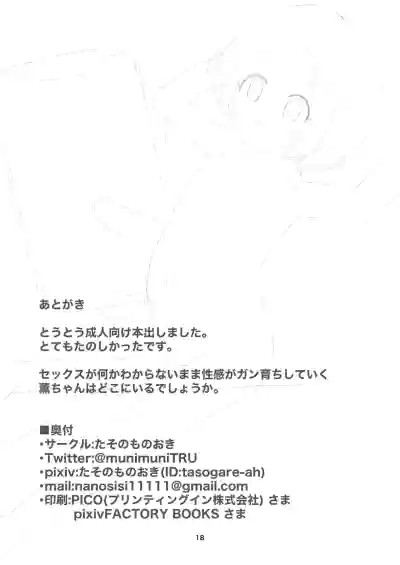 あとがき
とうとう成人向け本出しました。
とてもたのしかったです。
セックスが何かわからないまま性感がガン育ちしていく
薫ちゃんはどこにいるでしょうか。
■奥付
・サークル:たそのものおき
・Twitter:@munimuniTRU
・pixiv:たそのものおき(ID:tasogare-ah)
・mail:nanosisi11111@gmail.com
・印刷:PICO(プリンティングイン株式会社) さま
pixivFACTORY BOOKS さま
18